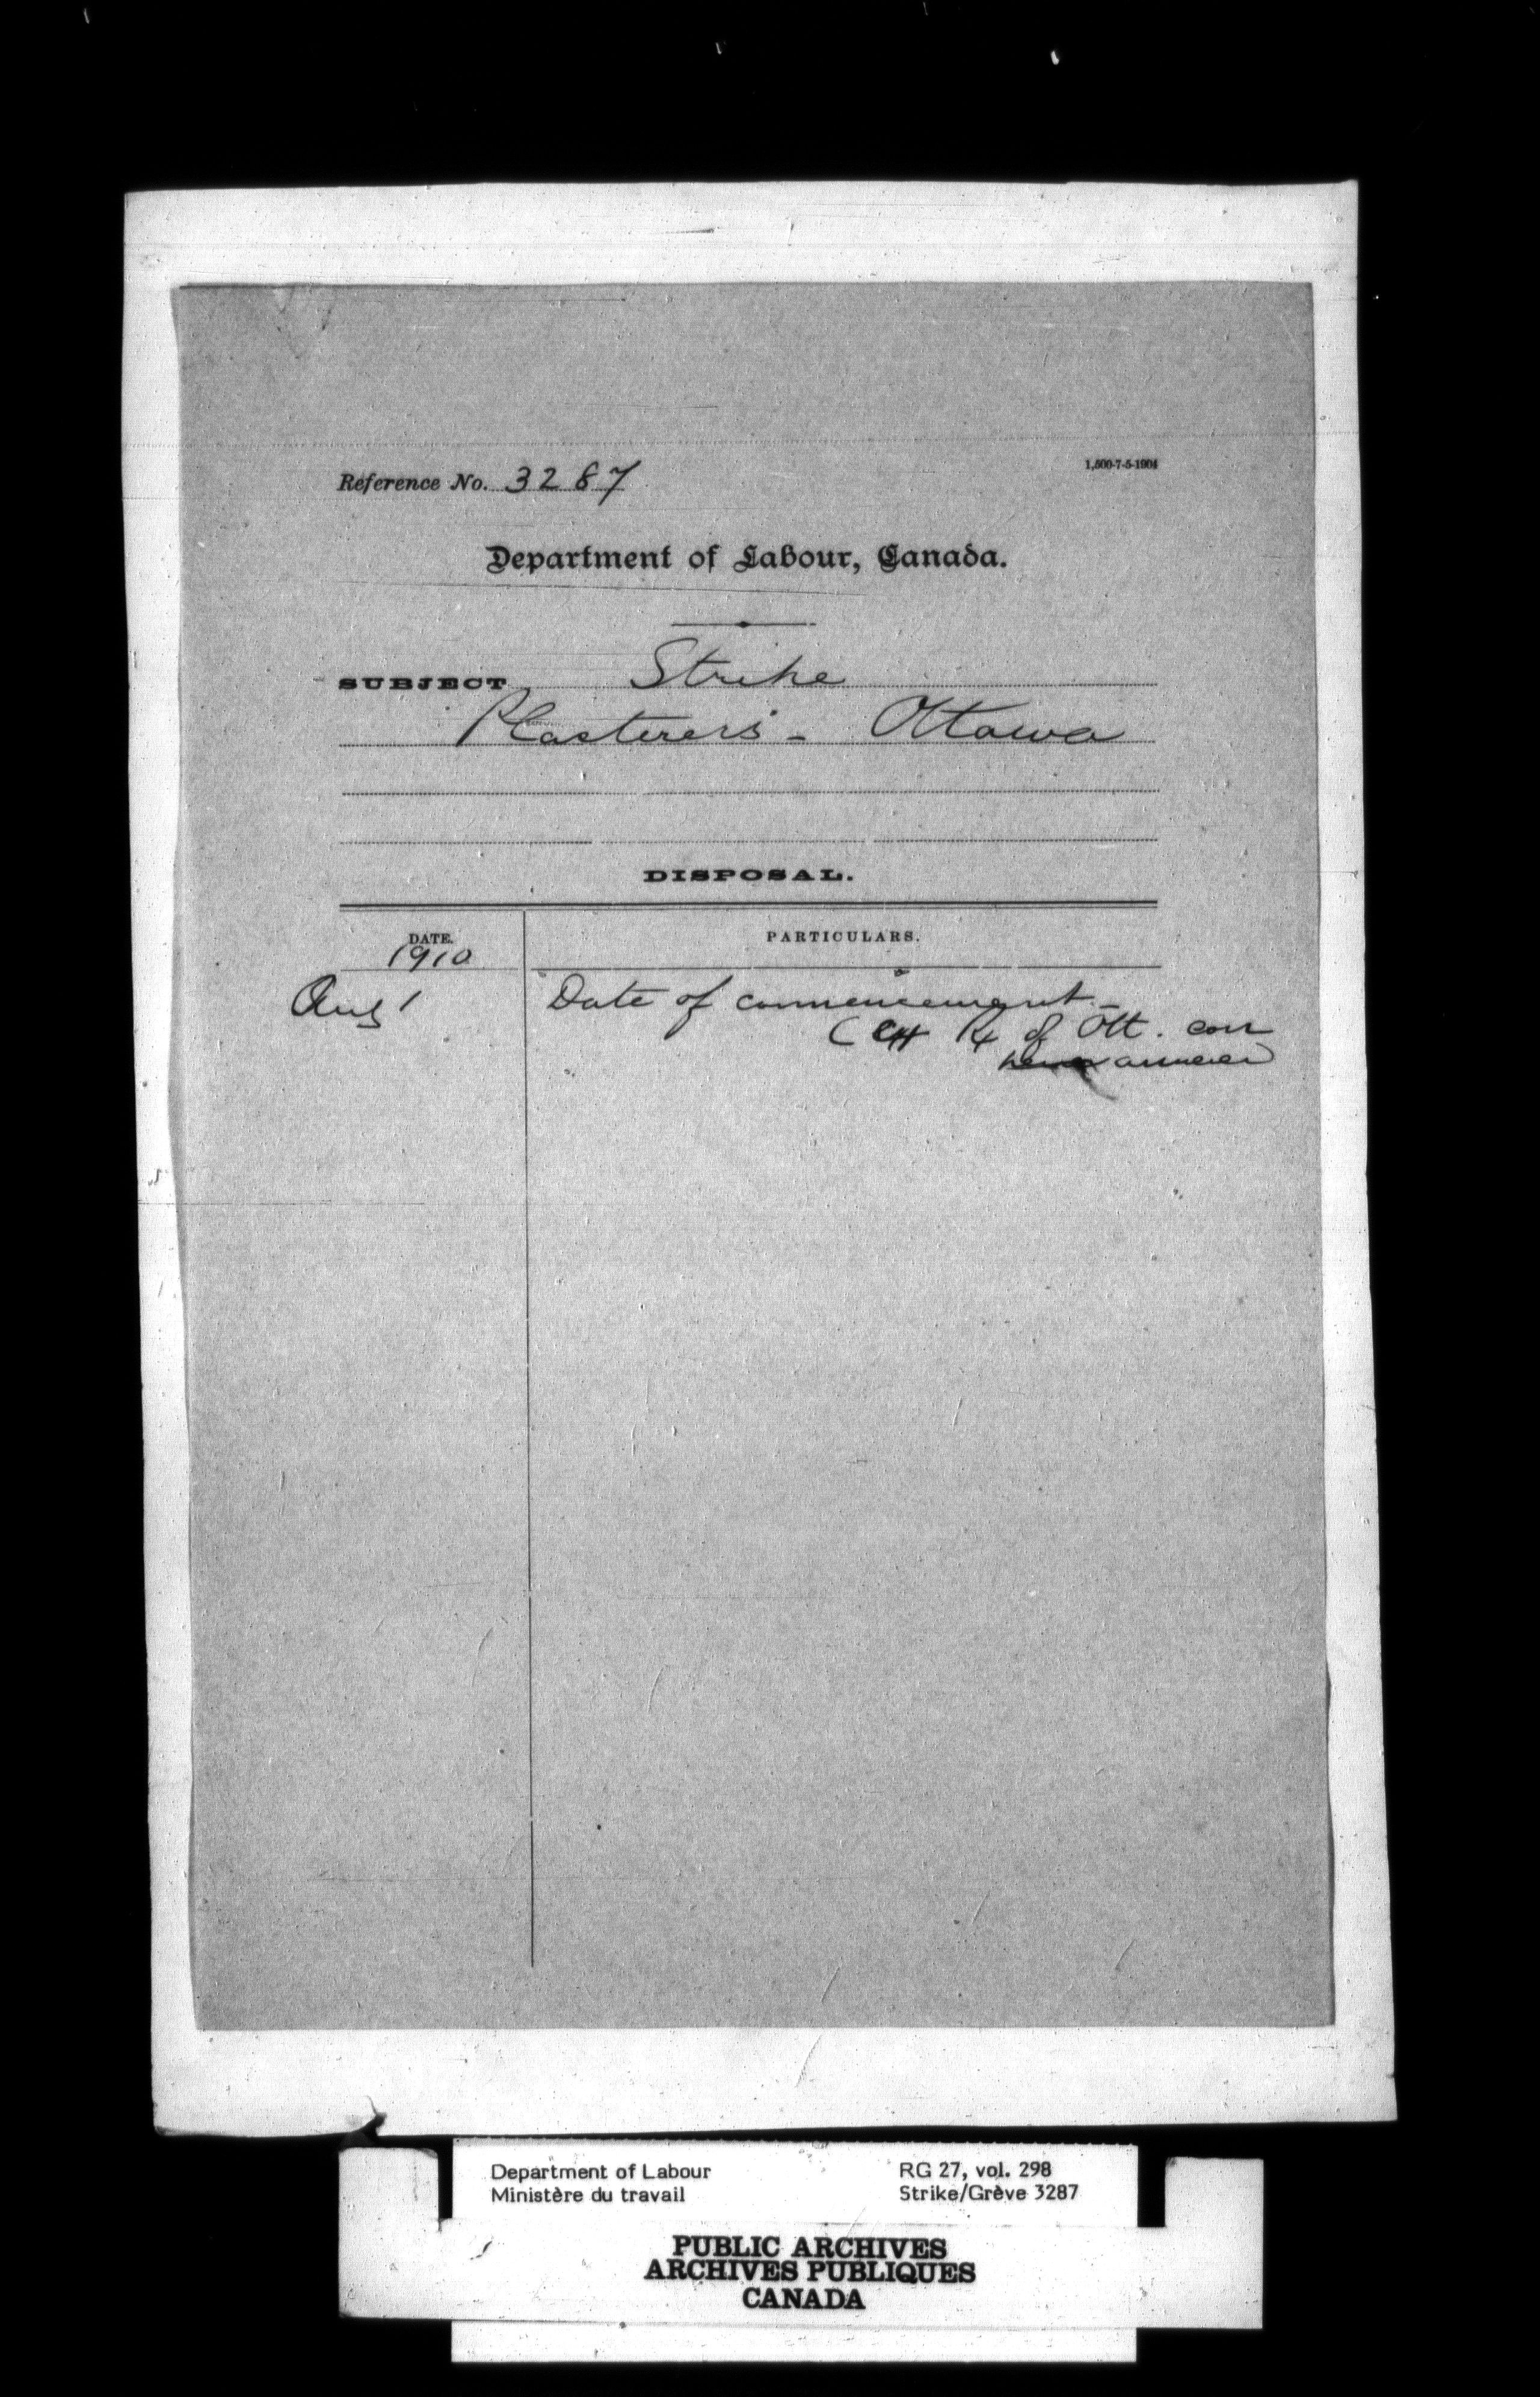 Reference No. 3287
1,500-7-5-1904
Department of Labour, Canada.
SUBJECT Strike
Plasterers - Ottawa
DISPOSAL.
DATE. PARTICULARS.
1910
Aug 1 Date of commencement -
of Ott. corr
Department of Labour
Ministère du travail
RG 27, vol. 298
Strike/Grève 3287
PUBLIC ARCHIVES
ARCHIVES PUBLIQUES
CANADA